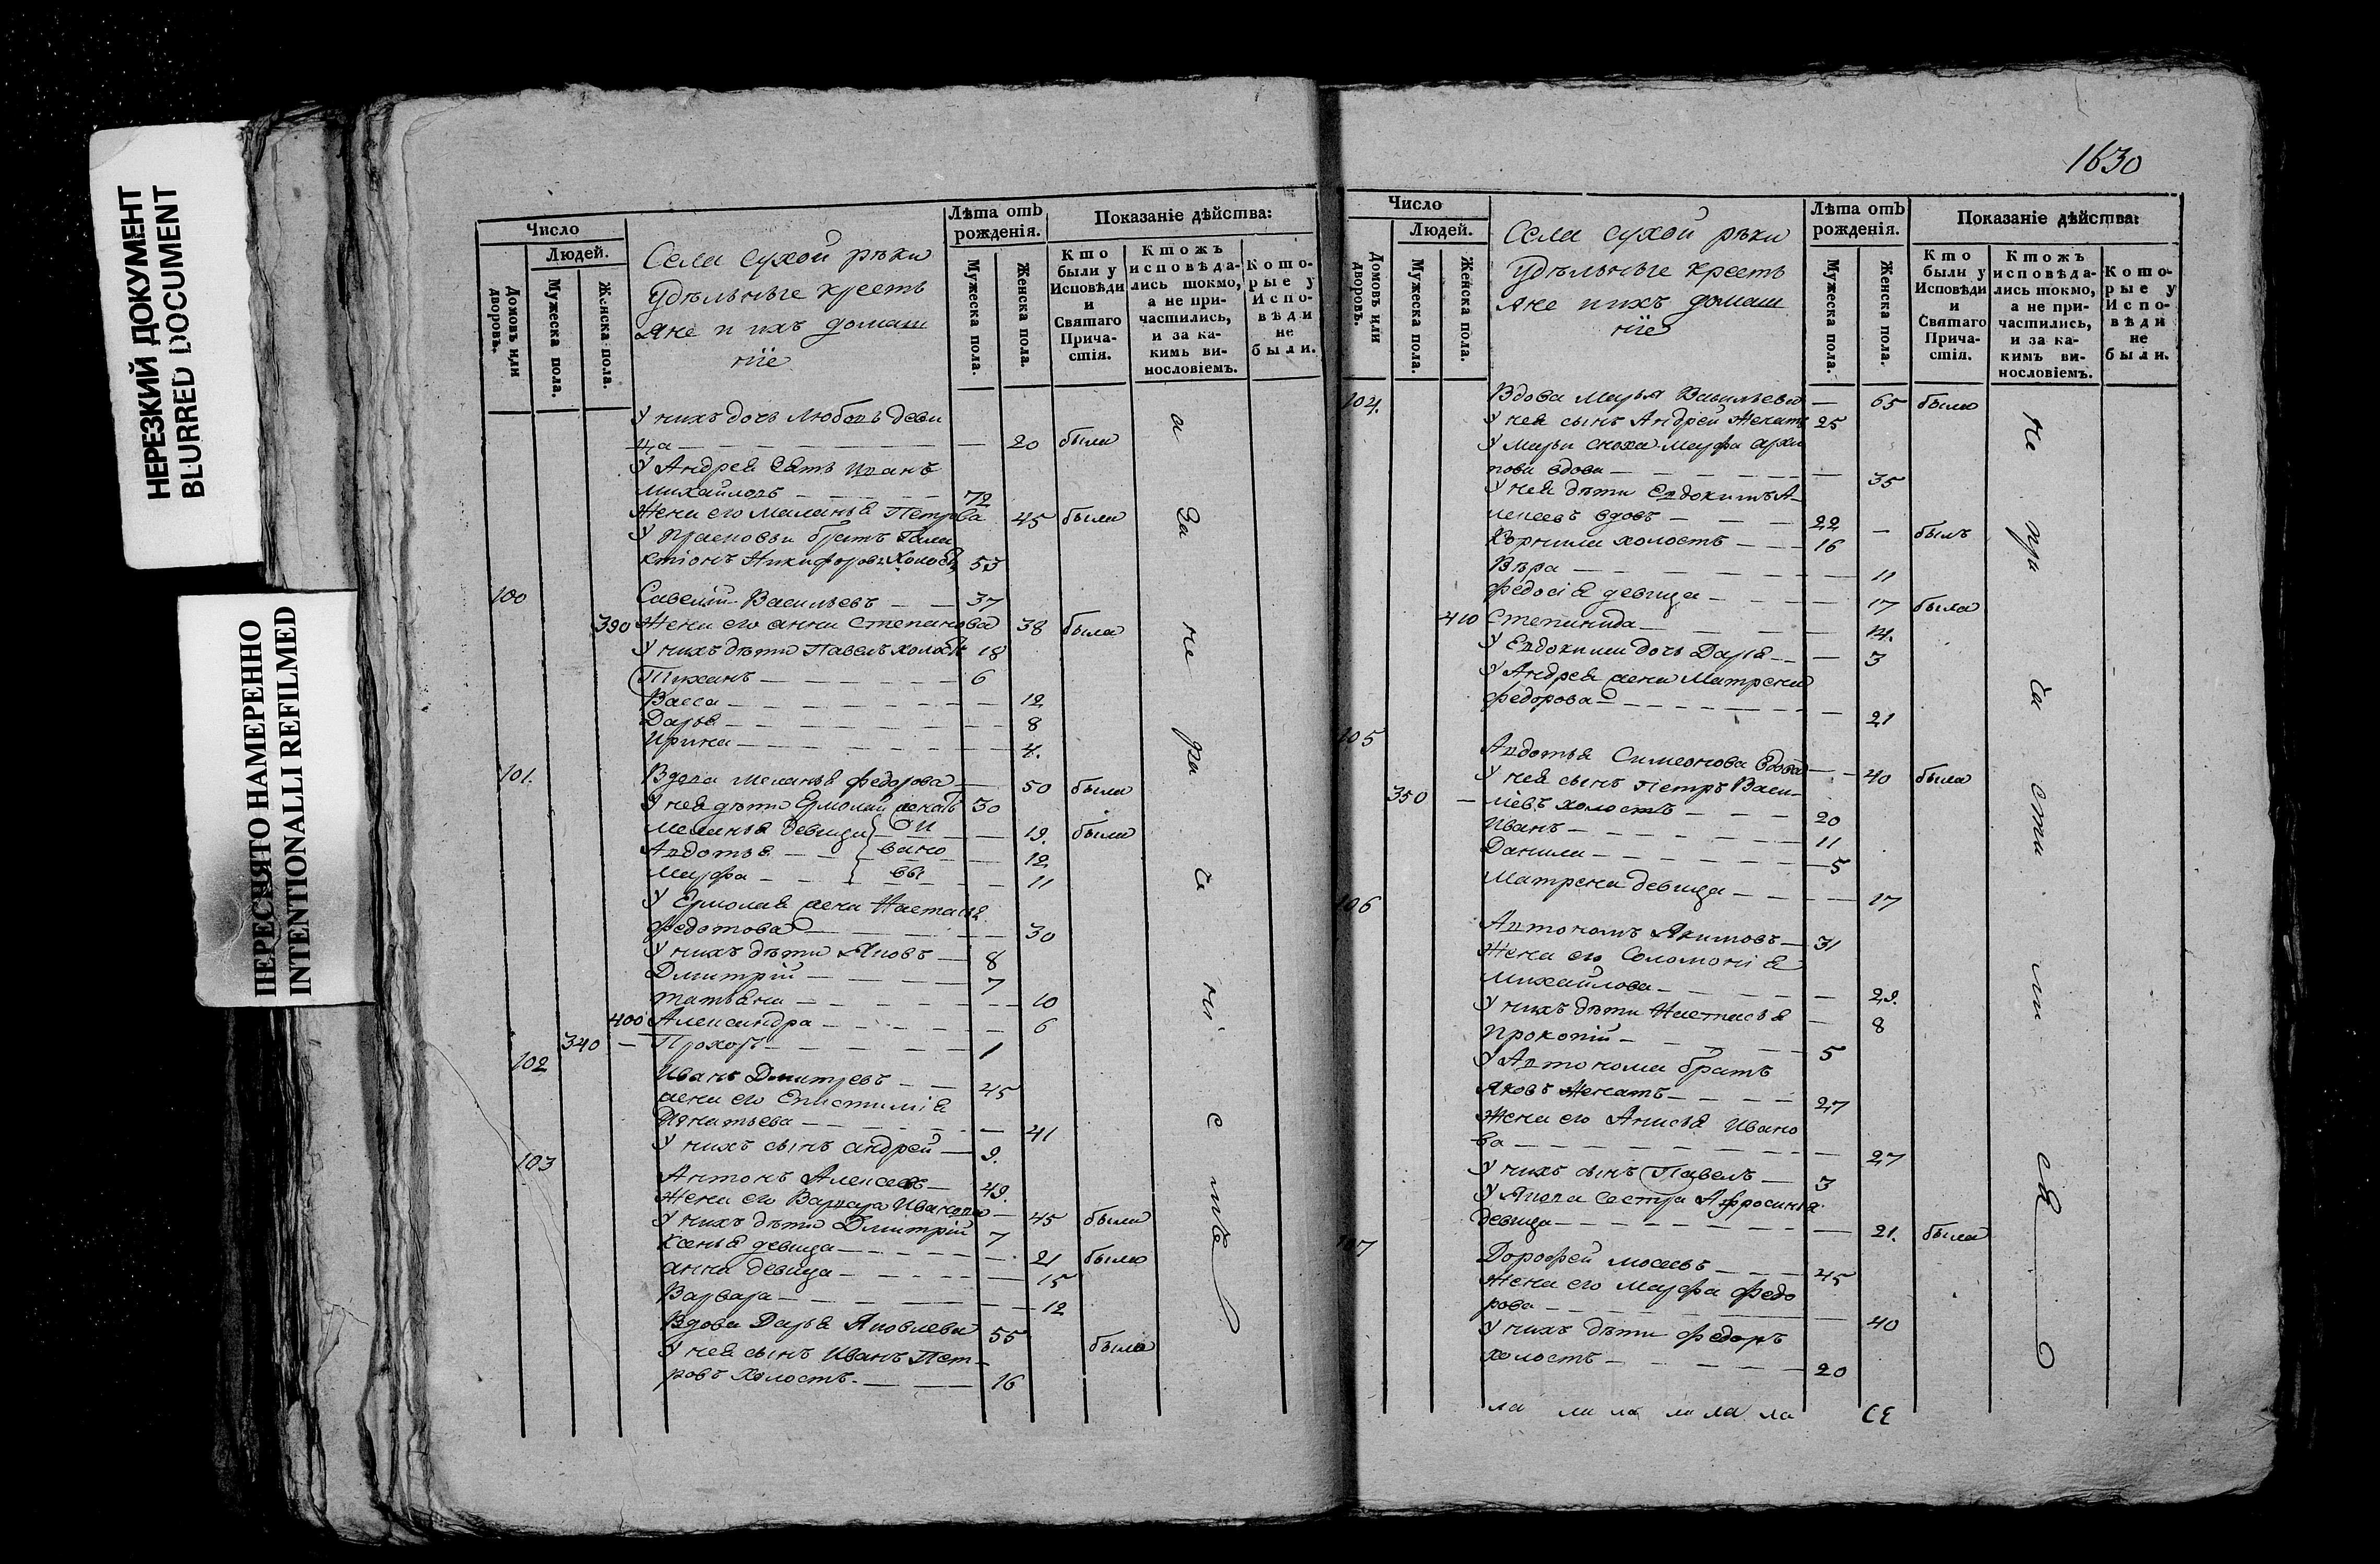 НЕРЕЗКИЙ ДОКУМЕНТ
BLURRED DOCUMENT
ПЕРЕСНЯТО НАМЕРЕННО
INTENTIONALLI REFILMED
Число
Людей.
Домовъ или дворовъ.
Мужеска пола.
Женска пола.
Села сухой рѣки
Удѣльные кресть
яне и ихъ домаш
ніе
Лѣта отъ рожденія.
Мужеска пола.
Женска пола.
Показаніе дѣйства:
Кто были у Исповѣди и Святаго Прича-стія.
Ктожъ исповѣда-лись токмо, а не при-частились, и за ка-кимъ ви-нословіемъ.
Кото-рые у Испо-вѣди не были.
У нихъ дочь Любовь деви
ца — — 20 была
У Андрея зять Иванъ
Михайловъ — 72
Жена его Маланья Петрова 45 была
У Прасковьи братъ Гала
ктіонъ Никифоровъ холостъ 53
100 Савелій Васильевъ — 37
390 Жена его анна Степанова 38 была
У нихъ дѣти Павелъ холостъ 18
Тиханъ — 6
Васса — 12
Дарья — 8
Ирина — 4.
101. Вдова меланья федорова — 50 была
У нея дѣти Ермолай женатъ 30
Меланья девица — 19. была
Авдотья — 12
Марфа — 11
И
вано
вы
У Ермолая жена Настасья
Федотова — 30
У нихъ дѣти Яковъ — 8
Дмитрій — 7
татьяна — 10
400 Александра — 6
340 — Прохоръ — 1
102 Иванъ Дмитревъ — 45
жена его Епистимія
Игнатьева — 41
У нихъ сынъ андрей — 9.
103 Антонъ Алексеевъ — 49.
Жена его Варвара Иванова — 45 была
У нихъ дѣти Дмитрій 7
Ксенья девица — 21 была
анна девица — 15
Варвара — 12
Вдова Дарья Яковлева 55 была
У нея сынъ Иванъ Пет-
ровъ холостъ. — 16
а за не ра ч ні е мъ
1630
Число
Людей.
Домовъ или дворовъ.
Мужеска пола.
Женска пола.
Села сухой рѣки
Удѣльные кресть
яне и ихъ домаш
ніе
Лѣта отъ рожденія.
Мужеска пола.
Женска пола.
Показаніе дѣйства:
Кто были у Исповѣди и Святаго Прича-стія.
Ктожъ исповѣда-лись токмо, а не при-частились, и за ка-кимъ ви-нословіемъ.
Кото-рые у Испо-вѣди не были.
104. Вдова Марья Васильева — 65 была
У нея сынъ Андрей Женатъ 25
У Марьи сноха Марфа архи
пова вдова — 35
У нея дѣти Евдокимъ А-
лексеевъ вдовъ — 22 — былъ
Корнила холостъ — 16
Вѣра — 11
Федосія девица — 17 была
410 Степанида — 14.
У Евдокима дочь Дарья — 3
У Андрея жена Матрена
федорова — 21
105 Авдотья Симеонова вдова — 40 была
У нея сынъ Петръ Васи-
350 — льевъ холостъ — 20
Иванъ — 11
Данила — 5
Матрена девица — 17
106 Автономъ Якимовъ — 31
Жена его Соломонія
Михайлова — 29.
У нихъ дѣти Настасья — 8
Прокопій — 5
У Автонома братъ
Яковъ Женатъ — 27
Жена его Анисья Ивано
ва — 27
У нихъ сынъ Павелъ — 3
У Якова сестра Афросинья
девица — 21. была
107 Дорофей мосеевъ — 45
Жена его Марфа Федо
рова — 40
У нихъ дѣти Федоръ
холостъ — 20
не при ча сти ли ся
ла ла ла ла ла ла